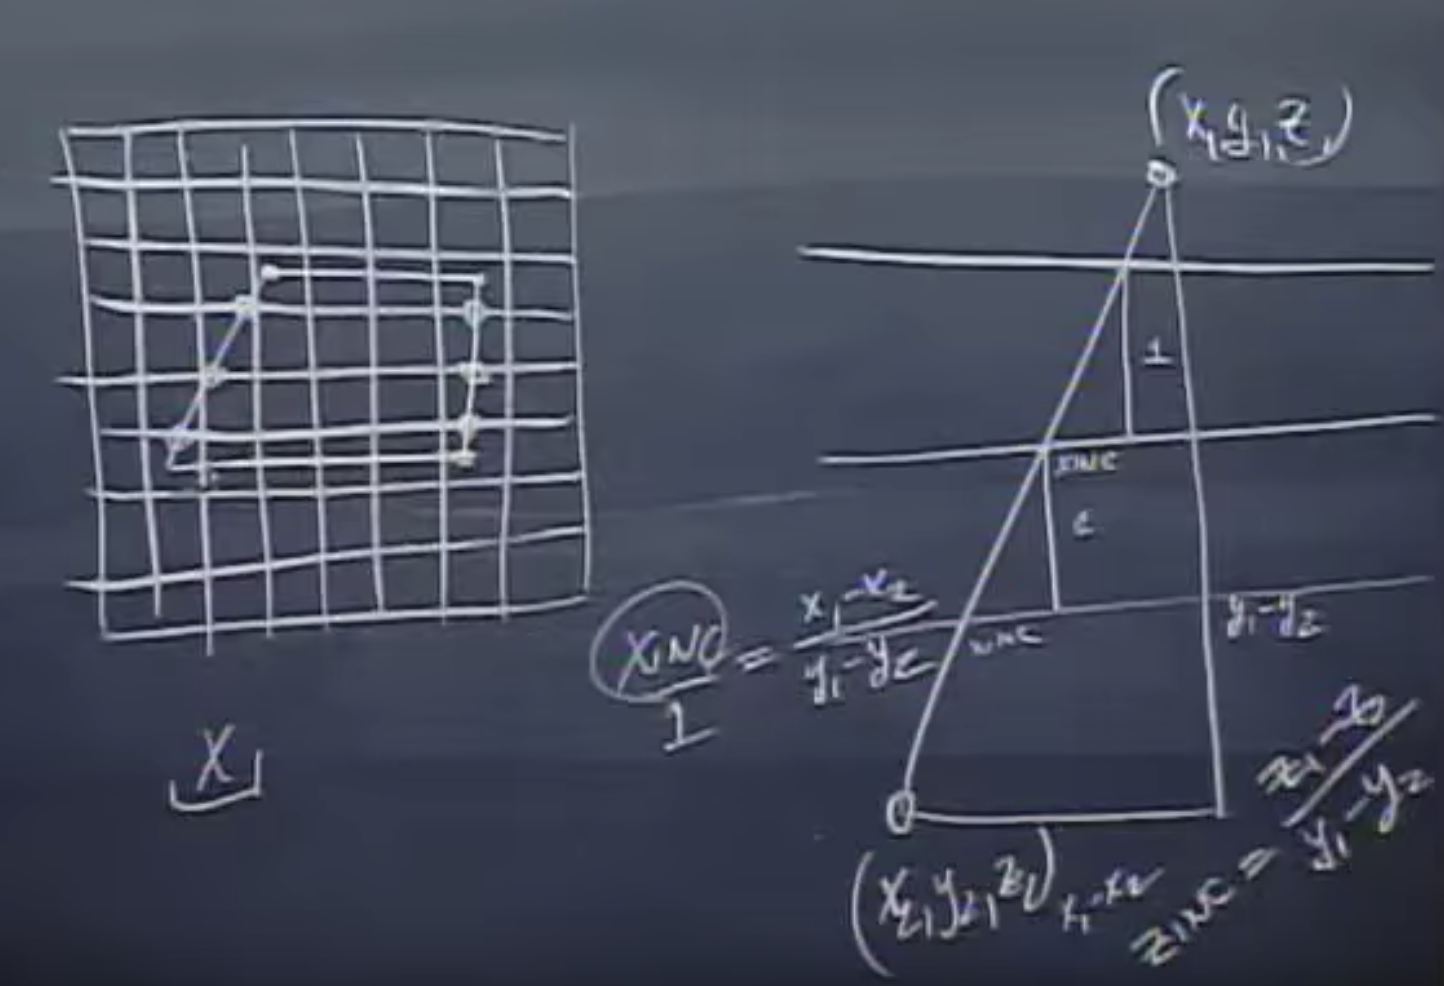 (x₁, y₁, z₁)
1
XINC
1
XINC/1 = x₁-x₂/y₁-y₂
XINC
y₁-y₂
X
(x₂, y₂, z₂)
x₁-x₂
ZINC = z₁-z₂/y₁-y₂